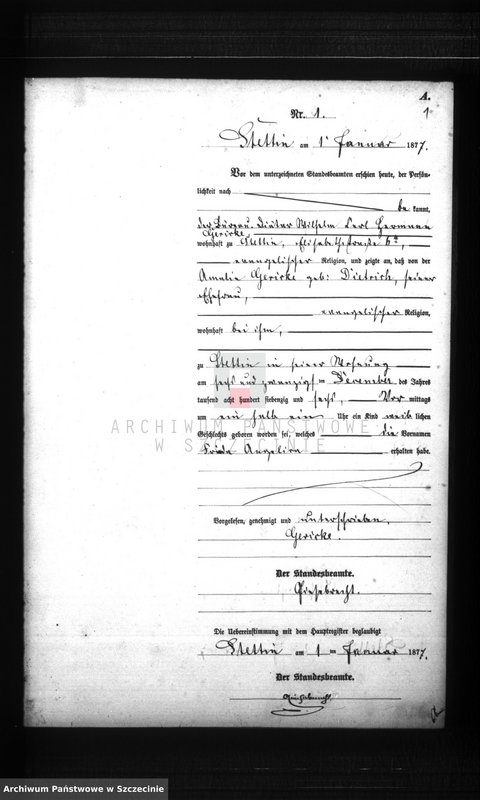 A.
1
Nr. 1.
Stettin am 1ᵗ Januar 1877.
Vor dem unterzeichneten Standesbeamten erschien heute, der Persön-
lichkeit nach
be kannt,
der Büreau-Diätar Wilhelm Carl Hermann
Gericke
wohnhaft zu Stettin, Elisabethstraße 6ᵃ,
evangelischer Religion, und zeigte an, daß von der
Amalie Gericke geb: Dietrich, seiner
Ehefrau,
evangelischer Religion,
wohnhaft bei ihm,
zu Stettin in seiner Wohnung
am sechs und zwanzigs= December des Jahres
tausend acht hundert siebenzig und sechs, Vor mittags
um ein halb ein Uhr ein Kind weib lichen
Geschlechts geboren worden sei, welches die Vornamen
Frida Angelira erhalten habe.
ARCHIWUM PAŃSTWOWE
W SZCZECINIE
Vorgelesen, genehmigt und unterschrieben.
Gericke.
Der Standesbeamte.
Giesebrecht.
Die Uebereinstimmung mit dem Hauptregister beglaubigt
Stettin am 1 = Januar 1877.
Der Standesbeamte.
Giesebrecht
Archiwum Państwowe w Szczecinie